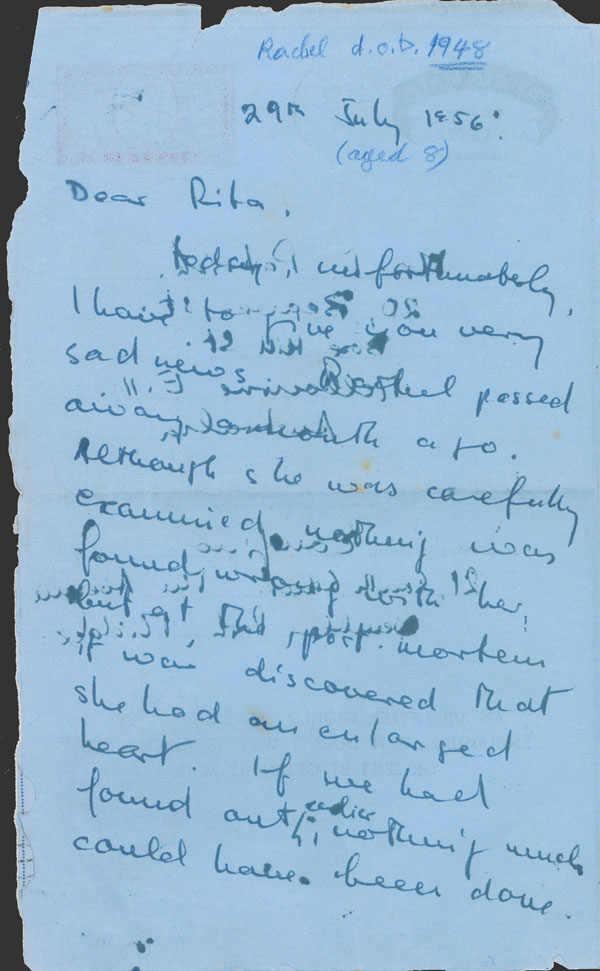 Rachel d.o.b. 1948
29th July 1956.
(aged 8)
Dear Rita,
unfortunately,
I have to give you very
sad news. Rachel passed
away a month ago.
Although she was carefully
examined, nothing was
found wrong with her,
but at the post mortem
it was discovered that
she had an enlarged
heart. If we had
found out earlier, nothing much
could have been done.